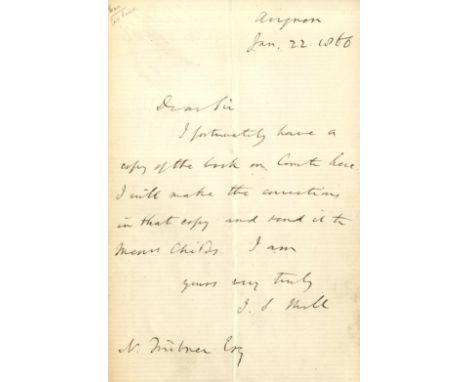 Avignon
Jan. 22 1866
Dear Sir
I fortunately have a
copy of the book on Comte here.
I will make the corrections
in that copy and send it to
Messrs Childs. I am
yours very truly
J. S. Mill
N. Trübner Esq